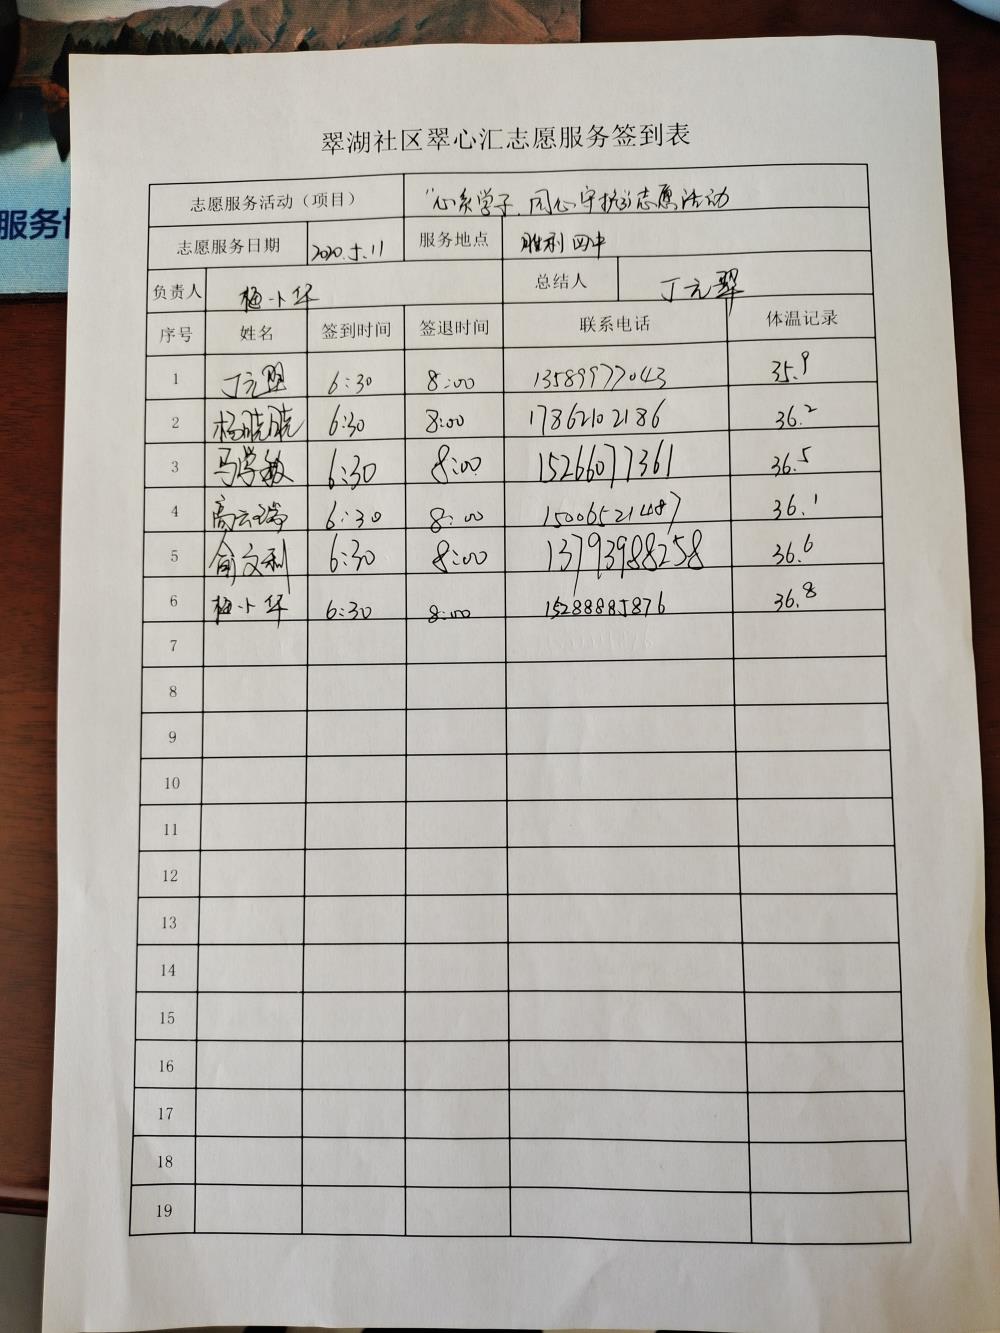 翠湖社区翠心汇志愿服务签到表
志愿服务活动（项目） "心系学子，同心守护"志愿活动
志愿服务日期 2020.5.11 服务地点 胜利四中
负责人 梅小华 总结人 丁元翠
序号 姓名 签到时间 签退时间 联系电话 体温记录
1 丁元翠 6:30 8:00 13589977043 35.9
2 杨晓晓 6:30 8:00 17862102186 36.2
3 马学敏 6:30 8:00 15266077361 36.5
4 高云瑞 6:30 8:00 15006521487 36.1
5 俞文利 6:30 8:00 13793988258 36.6
6 梅小华 6:30 8:00 15288885876 36.8
7
8
9
10
11
12
13
14
15
16
17
18
19
服务